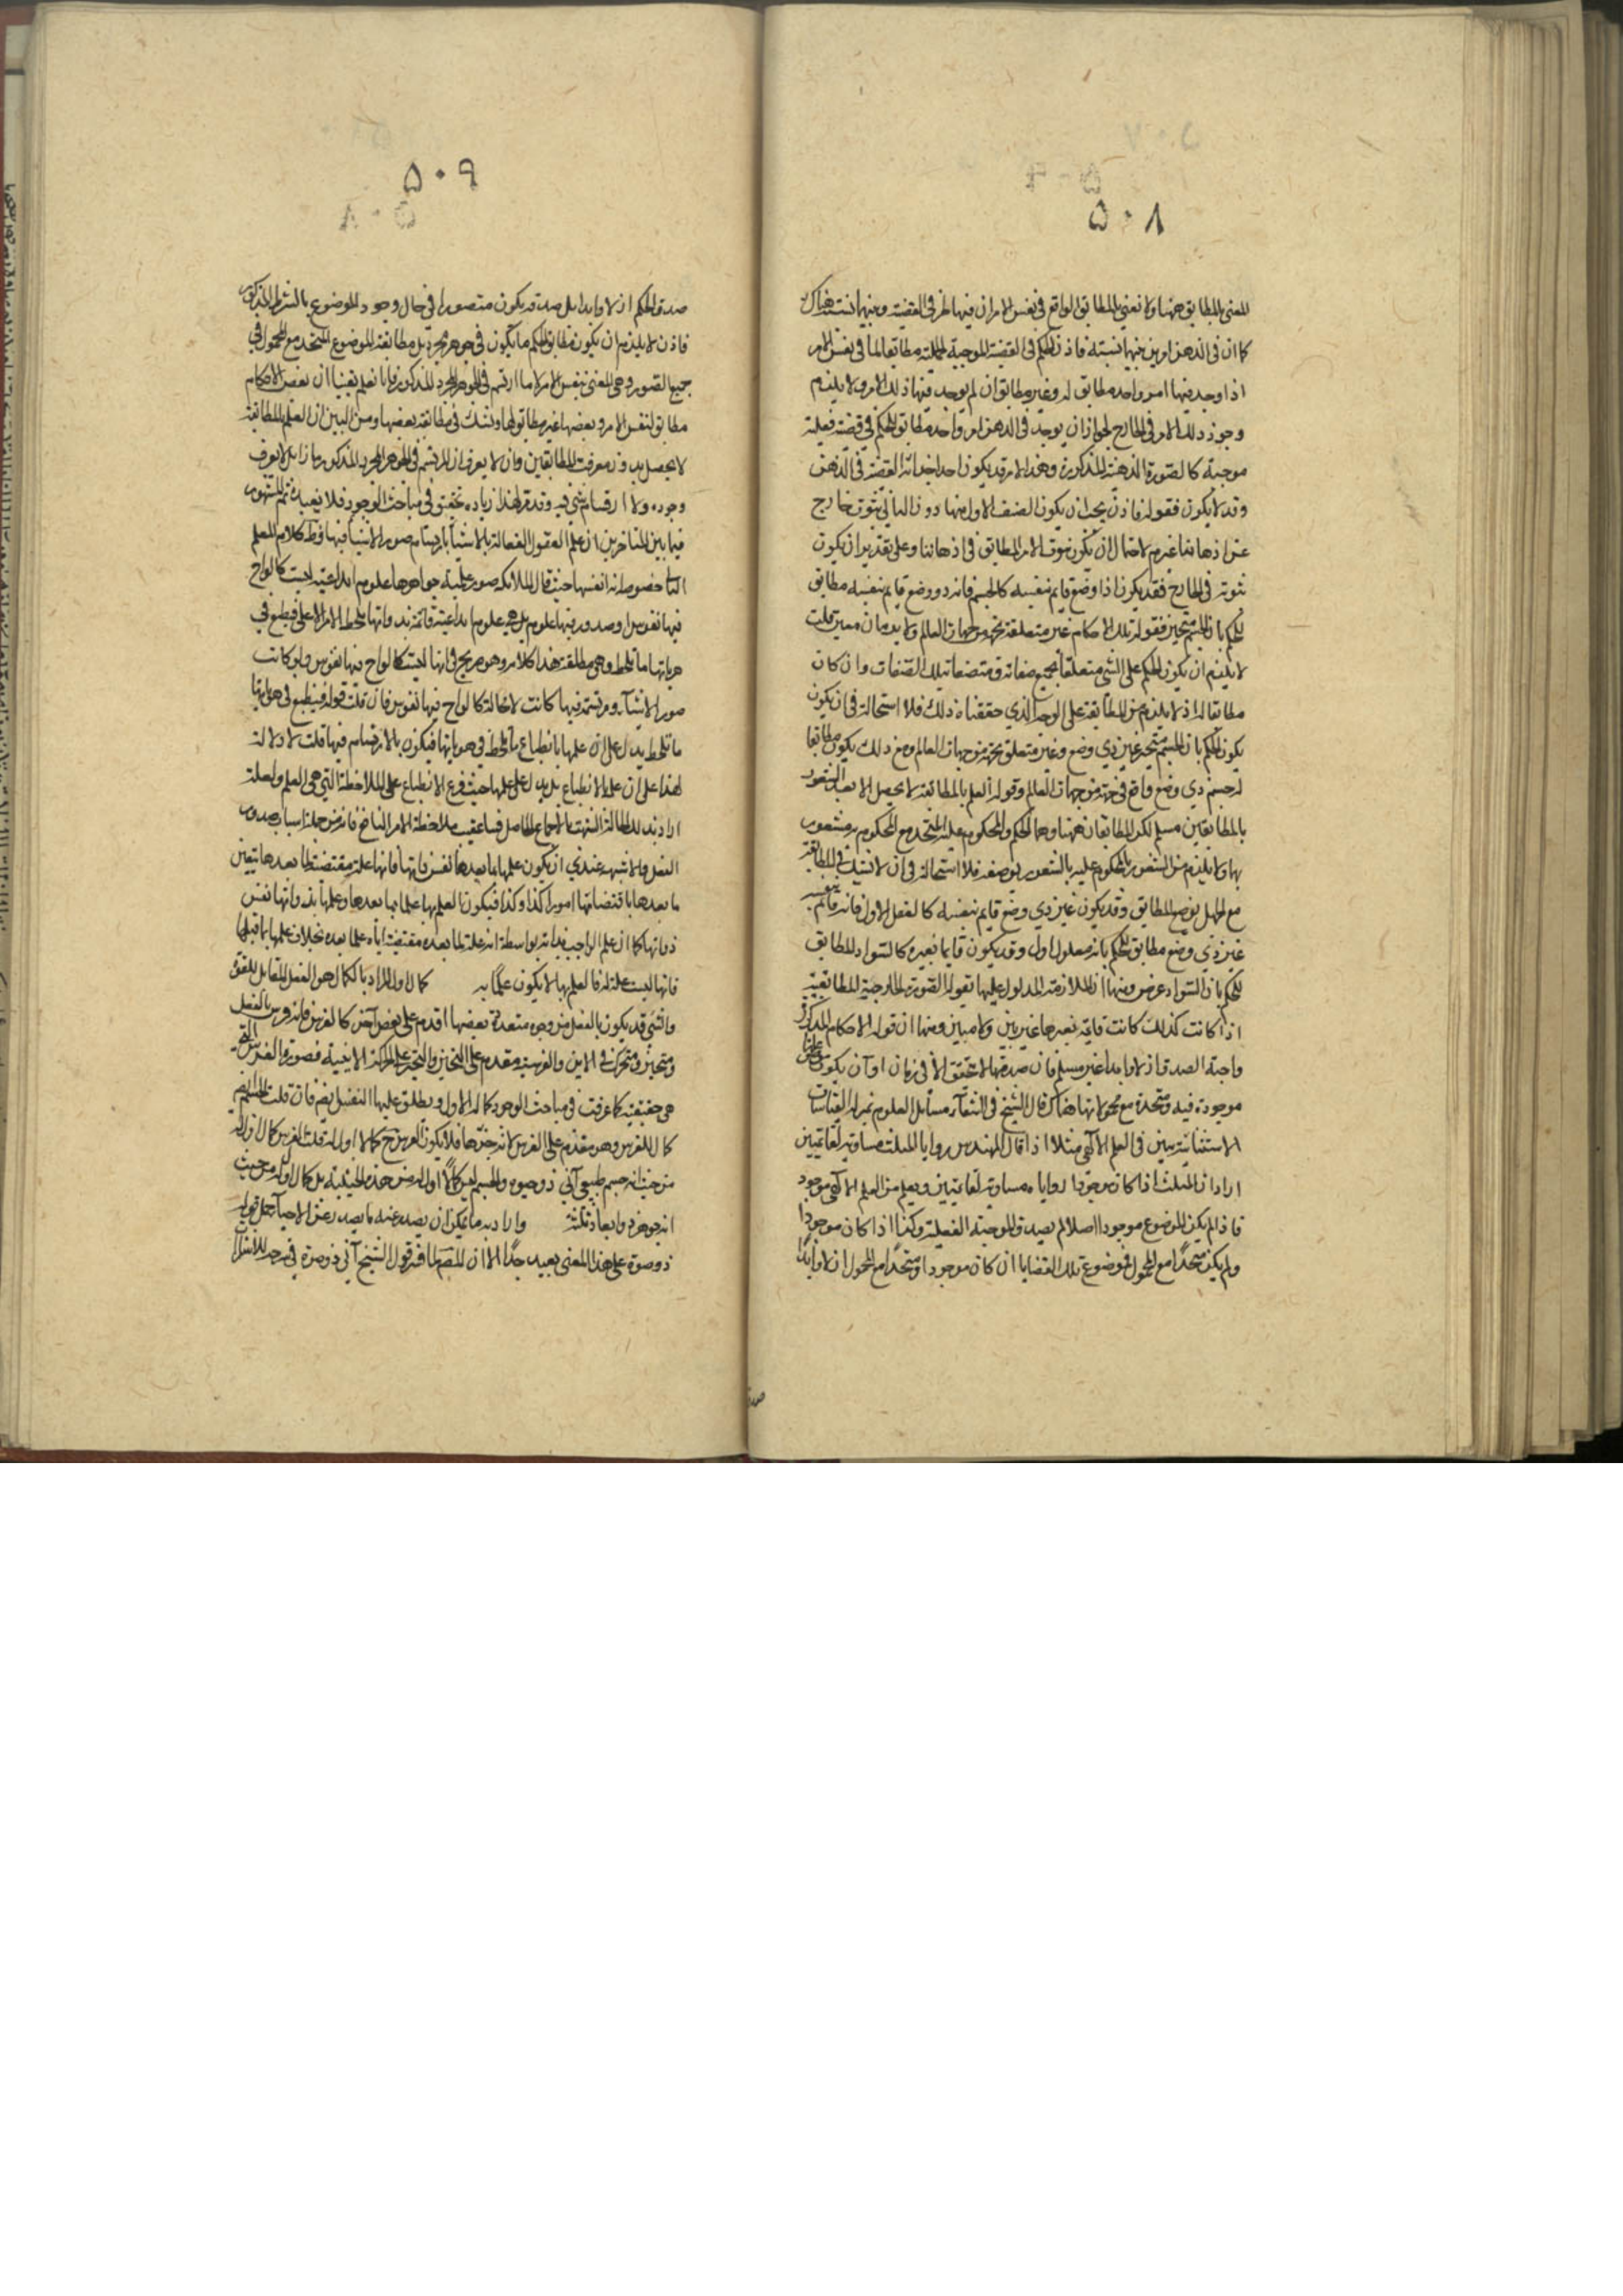 ۵۰۸
المعنى بالمطابق ههنا ولا نعني بالمطابق الواقع في نفس الامر ان فيها طرفي القضية وبينهما نسبة هناك
كما ان في الذهن امرين بينهما نسبة فاذن الحكم في القضية الموجبة الحملية مطابقا لما في نفس الامر
اذا وجد فيها امر واحد مطابق له وغير مطابق ان لم يوجد فيها ذلك الامر ولا يلزم
وجوز ذلك الامر في الخارج لجواز ان يوجد في الذهن امر واحد مطابق للحكم في قضية فعلية
موجبة كالصورة الذهنية المذكورة وهذا الامر قد يكون احد اجزاء القضية في الذهن
وقد لا يكون فقوله فاذن يجب ان يكون الصنف الاول منها دون الثاني ثبوت خارج
عن اذهاننا غير م لاحتمال ان يكون ثبوت الامر المطابق في اذهاننا وعلى تقدير ان يكون
ثبوته في الخارج فقد يكون ذا وضع قايم بنفسه كالجسم فانه ذو وضع قايم بنفسه مطابق
للحكم بان الجسم متحيز فقوله تلك الاحكام غير متعلقة بجهة من جهات العالم ولا بزمان معين قلت
لا يلزم ان يكون الحكم على الشي متعلقا بجميع صفاته ومتصفا بتلك الصفات وان كان
مطابقا له اذ لا يلزم من المطابقة على الوجه الذي حققناه ذلك فلا استحالة في ان يكون
يكون الحكم بان الجسم متحيز غير ذي وضع وغير متعلق بجهة من جهات العالم ومع ذلك يكون مطابقا
لجسم ذي وضع واقع في جهة من جهات العالم وقوله العلم بالمطابقة لا يحصل الا بعد الشعور
بالمطابقين مسلم لكن المطابقان ههنا وهما الحكم والمحكوم عليه المتحد مع المحكوم به مشعور
بها ولا يلزم من الشعور بالمحكوم عليه الشعور بوضعه فلا استحالة في ان لا نشك في المطابقة
مع الجهل بوضع المطابق وقد يكون غير ذي وضع قايم بنفسه كالعقل الاول فانه قائم بنفسه
غير ذي وضع مطابق للحكم بانه معلول اول وقد يكون قايما بغيره كالسواد المطابق
للحكم بان السواد عرض ومنها ان الملازمة المدلول عليها بقوله الصورة الخارجية المطابقية
اذا كانت كذلك كانت قايمة بغيرها غير بين ولا مبين ومنها ان قوله الاحكام المذكورة
واجبة الصدق ازلا وابدا غير مسلم فان صدقها لا تحقق الا في زمان او آن يكون
موجودة فيه ومتحدة مع محمولاتها هناك قال الشيخ في الشفآء مسائل العلوم
الاستثنائية يبين في العلم الالهي مثلا اذا قال المهندس زوايا المثلث مساوية لقائمتين
اراد ان المثلث اذا كان موجودا زوايا مساوية لقائمتين ويعلم من العلم الالهي موجود
فاذ لم يكن الموضوع موجودا اصلا لم يصدق الموجبة الفعلية وكذا اذا كان موجودا
ولم يكن متحدا مع المحول فموضوع تلك القضايا ان كان موجودا ومتحدا مع المحمول ازلا وابدا
۵۰۹
صدق الحكم ازلا وابدا بل صدقه يكون متصورا في حال وجود الموضوع بالشرط المذكور
فاذن لا يلزم ان يكون مطابق الحكم ما يكون في جوهر مجرد بل مطابقه الموضوع المتحد مع المحمول في
جميع الصور وهي المعنى بنفس الامر لا ما ارتسم في الجوهر المجرد المذكور فانا نعلم يقينا ان بعض الاحكام
مطابق لنفس الامر وبعضها غير مطابق لها ونشك في مطابقة بعضها ومن البين ان العلم بالمطابقة
لا يحصل بدون معرفة المطابقين وان لا يعرف ان المرتسم في الجوهر المجرد المذكور ما ذا بل لا يعرف
وجوده ولا ارتسام شي فيه وقد مر لهذا زيادة تحقيق في مباحث الوجود فلا نعيده ثم المشهور
فيما بين المتاخرين ان علم العقول الفعالة بالاشياء بارتسام صور الاشياء فيها وظ كلام المعلم
الثاني حصوصا انه انفسها حيث قال الملائكة صور علمية جواهرها علوم ابداعية ليست كالواح
فيها نقوش او صدور فيها علوم بل هي علوم ابداعية قائمة بذواتها تلحظ الامر الاعلى فيطبع في
هوياتها ما تلحظ وهي مطلقة هذا كلامه وهو صريح في انها ليست كالواح فيها نقوش ولو كانت
صور الاشيآء مرتسمة فيها كانت لا محالة كالواح فيها نقوش فان قلت قوله فينطبع في هوياتها
ما تلحظ يدل على ان علمها بانطباع ما تلحظ في هوياتها فيكون بالارتسام فيها قلت لا دلالة
لهذا على ان علمها الانطباع بل يدل على علمها حيث فرع الانطباع على الملاحظة التي هي العلم ولعله
العقل والاشبه عندي ان يكون علمها بما بعدها نفس ذاتها فانها علة مقتضية لما بعدها بتعين
ما بعدها باقتضائها امورا كذا وكذا فيكون العلم بها علما بما بعدها وعلمها بذواتها نفس
ذواتها كما ان علم الواجب بذاته بواسطة انه علة لما بعده مقتضية اياه علما بعده بخلاف علمها بما قبلها
فانها ليست علة له فالعلم بها لا يكون علما به كمال اول المراد بالكمال هو الفعل المقابل للقوة
والشي قد يكون بالفعل من وجوه متعددة بعضها اقدم على بعض آخر كالفرس فانه فرس بالفعل
ومتحيز ومتحرك في الاين والفرسية مقدم على التحيز والتحيز على الحركة الاينية فصورة الفرس التي
هي حقيقته كما عرفت في مباحث الوجود كماله الاول ويطلق عليها النفس ايضا فان قلت الجسم
كمال للفرس وهو مقدم على الفرس لانه جزؤها فلا يكون الفرس ح كمالا اول له قلت الفرس كمال اول له
من حيث انه جسم طبيعي آلي ذو حيوة والجسم ليس كمالا اول له من هذه الحيثية بل كمال اول له من حيث
انه جوهر ذو ابعاد ثلثة واراد به ما يمكن ان يصدر عنه ما يصدر عن الاحيآء حمل قوله
ذو صورة على هذا المعنى بعيد جدا الا ان المص لما فسر قول الشيخ آلي ذو صورة في